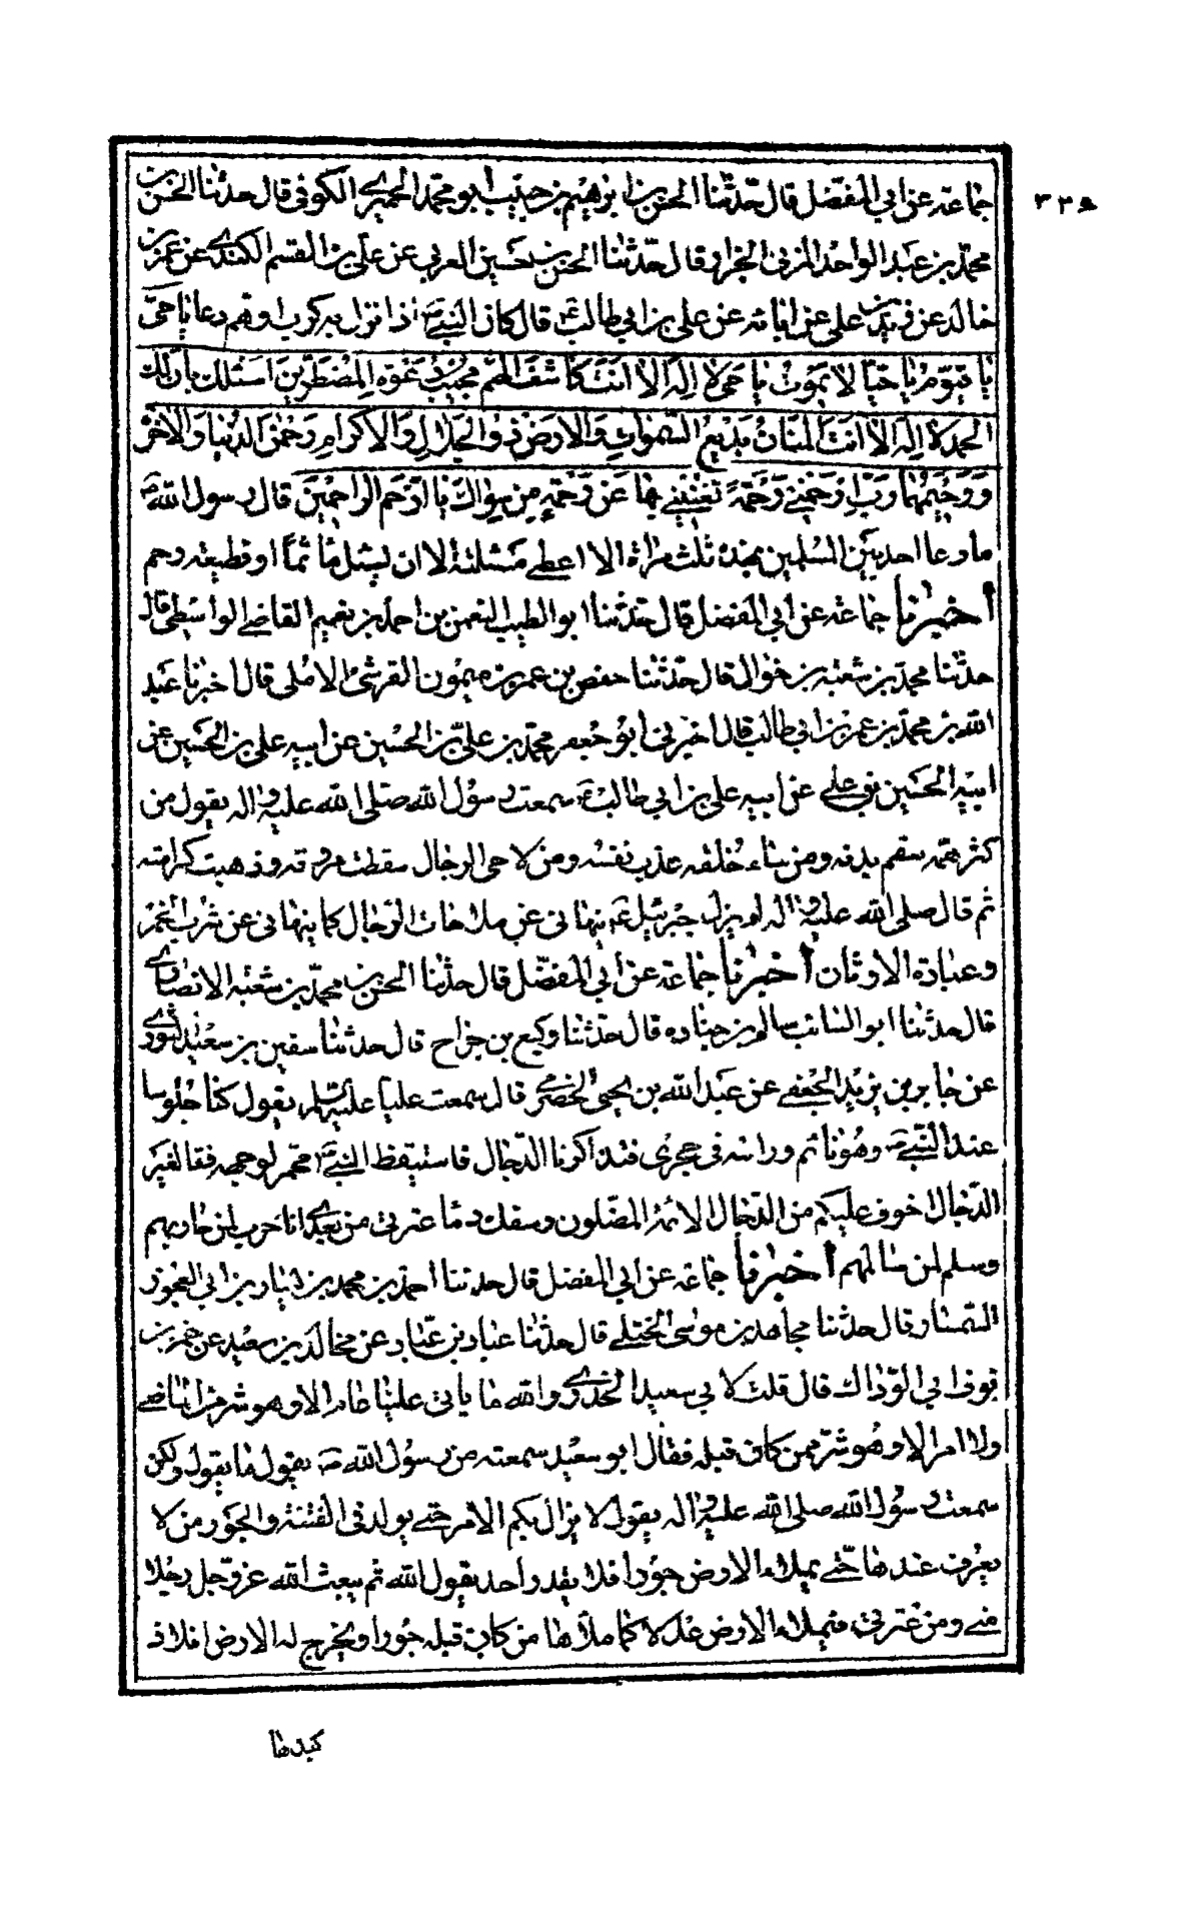 ٣٢٥
جماعة عن ابي المفضل قال حدّثنا الحسن بن ابرهيم بن حبيب ابو محمّد الحميري الكوفي قال حدثنا الحسن بن
محمّد بن عبد الواحد المزني الخزاز قال حدّثنا الحسن بن حسين العرني عن علي بن القسم الكندي عن عمر بن
خالد عن زيد بن علي عن ابائه عن علي بن ابي طالب ع قال كان النبي ص اذا نزل به كرب او هم دعا يا حيّ
يا قيّوم يا حيّا لا يموت يا حي لا اله الا انت كاشف الهم مجيب دعوة المضطرين اسئلك بان لك
الحمد لا اله الا انت المنان بديع السموات والارض ذو الجلال والاكرام رحمن الدنيا والاخرة
ورحيمهما ربّ ارحمني رحمة تغنيني بها عن رحمة من سواك يا ارحم الراحمين قال رسول الله ص
ما دعا احد من المسلمين بهذه ثلث مراة الا اعطي مسئلته الا ان يسئل ماثما او قطيعة رحم
أخبرنا جماعة عن ابي المفضل قال حدّثنا ابو الطيب النعمن بن احمد بن نعيم القاضي الواسطي قال
حدثنا محمد بن شعبة بن خوال قال حدّثنا حفص بن عمر بن ميمون القرشي الاملي قال اخبرنا عبد
الله بن محمّد بن عمر بن ابي طالب قال اخبرني ابو جعفر محمّد بن عليّ بن الحسين عن ابيه علي بن الحسين عن
ابيه الحسين بن علي عن ابيه علي بن ابي طالب ع سمعت رسول الله صلى الله عليه واله يقول من
كثر همه سقم بدنه ومن ساء خلقه عذب نفسه ومن لاحى الرجال سقطت مروته وذهبت كرامته
ثم قال صلى الله عليه واله لم يزل جبرئيل ع ينهاني عن ملاحات الرجال كما ينهاني عن شرب الخمر
وعبادة الاوثان أخبرنا جماعة عن أبي المفضّل قال حدثنا الحسن بن محمّد بن شعبه الانصاري
قال حدثنا ابو السائب سالم بن جناده قال حدّثنا وكيع بن جراح قال حدثنا سفين بن سعيد الثوري
عن جابر بن يزيد الجعفي عن عبد الله بن يحيى الحضرمي قال سمعت عليا عليه السلم يقول كنا جلوسا
عند النبي ص وهو نائم وراسه في حجري فتذاكرنا الدجال فاستيقظ النبي ص محمر لوجهه فقال لغير
الدّجال اخوف عليكم من الدجال الائمة المضلون وسفك دماء عترتي من بعدي انا حرب لمن حاربهم
وسلم لمن سالمهم أخبرنا جماعة عن ابي المفضل قال حدثنا احمد بن محمد بن بن ابي العجوز
قال حدثنا مجاهد بن موسى الختلي قال حدّثنا عباد بن عباد عن مخالد بن سعيد عن جبر بن
نوف ابي الودّاك قال قلت لابي سعيد الخدري والله ما ياتي علينا عام الا وهو شر من الماضي
ولا امر الا وهو شرّ ممن كان قبله فقال ابو سعيد سمعته من رسول الله ص يقول ما يقول ولكن
سمعت رسول الله صلى الله عليه واله يقول لا يزال بكم الامر حتى يولد في الفتنة والجور من لا
يعرف عندها حتى يملاء الارض جورا فلا يقدر احد يقول الله ثم يبعث الله عز وجل رجلا
مني ومن عترتي فيملاء الارض عدلا كما ملاها من كان قبله جورا ويخرج له الارض افلاذ
كبدها